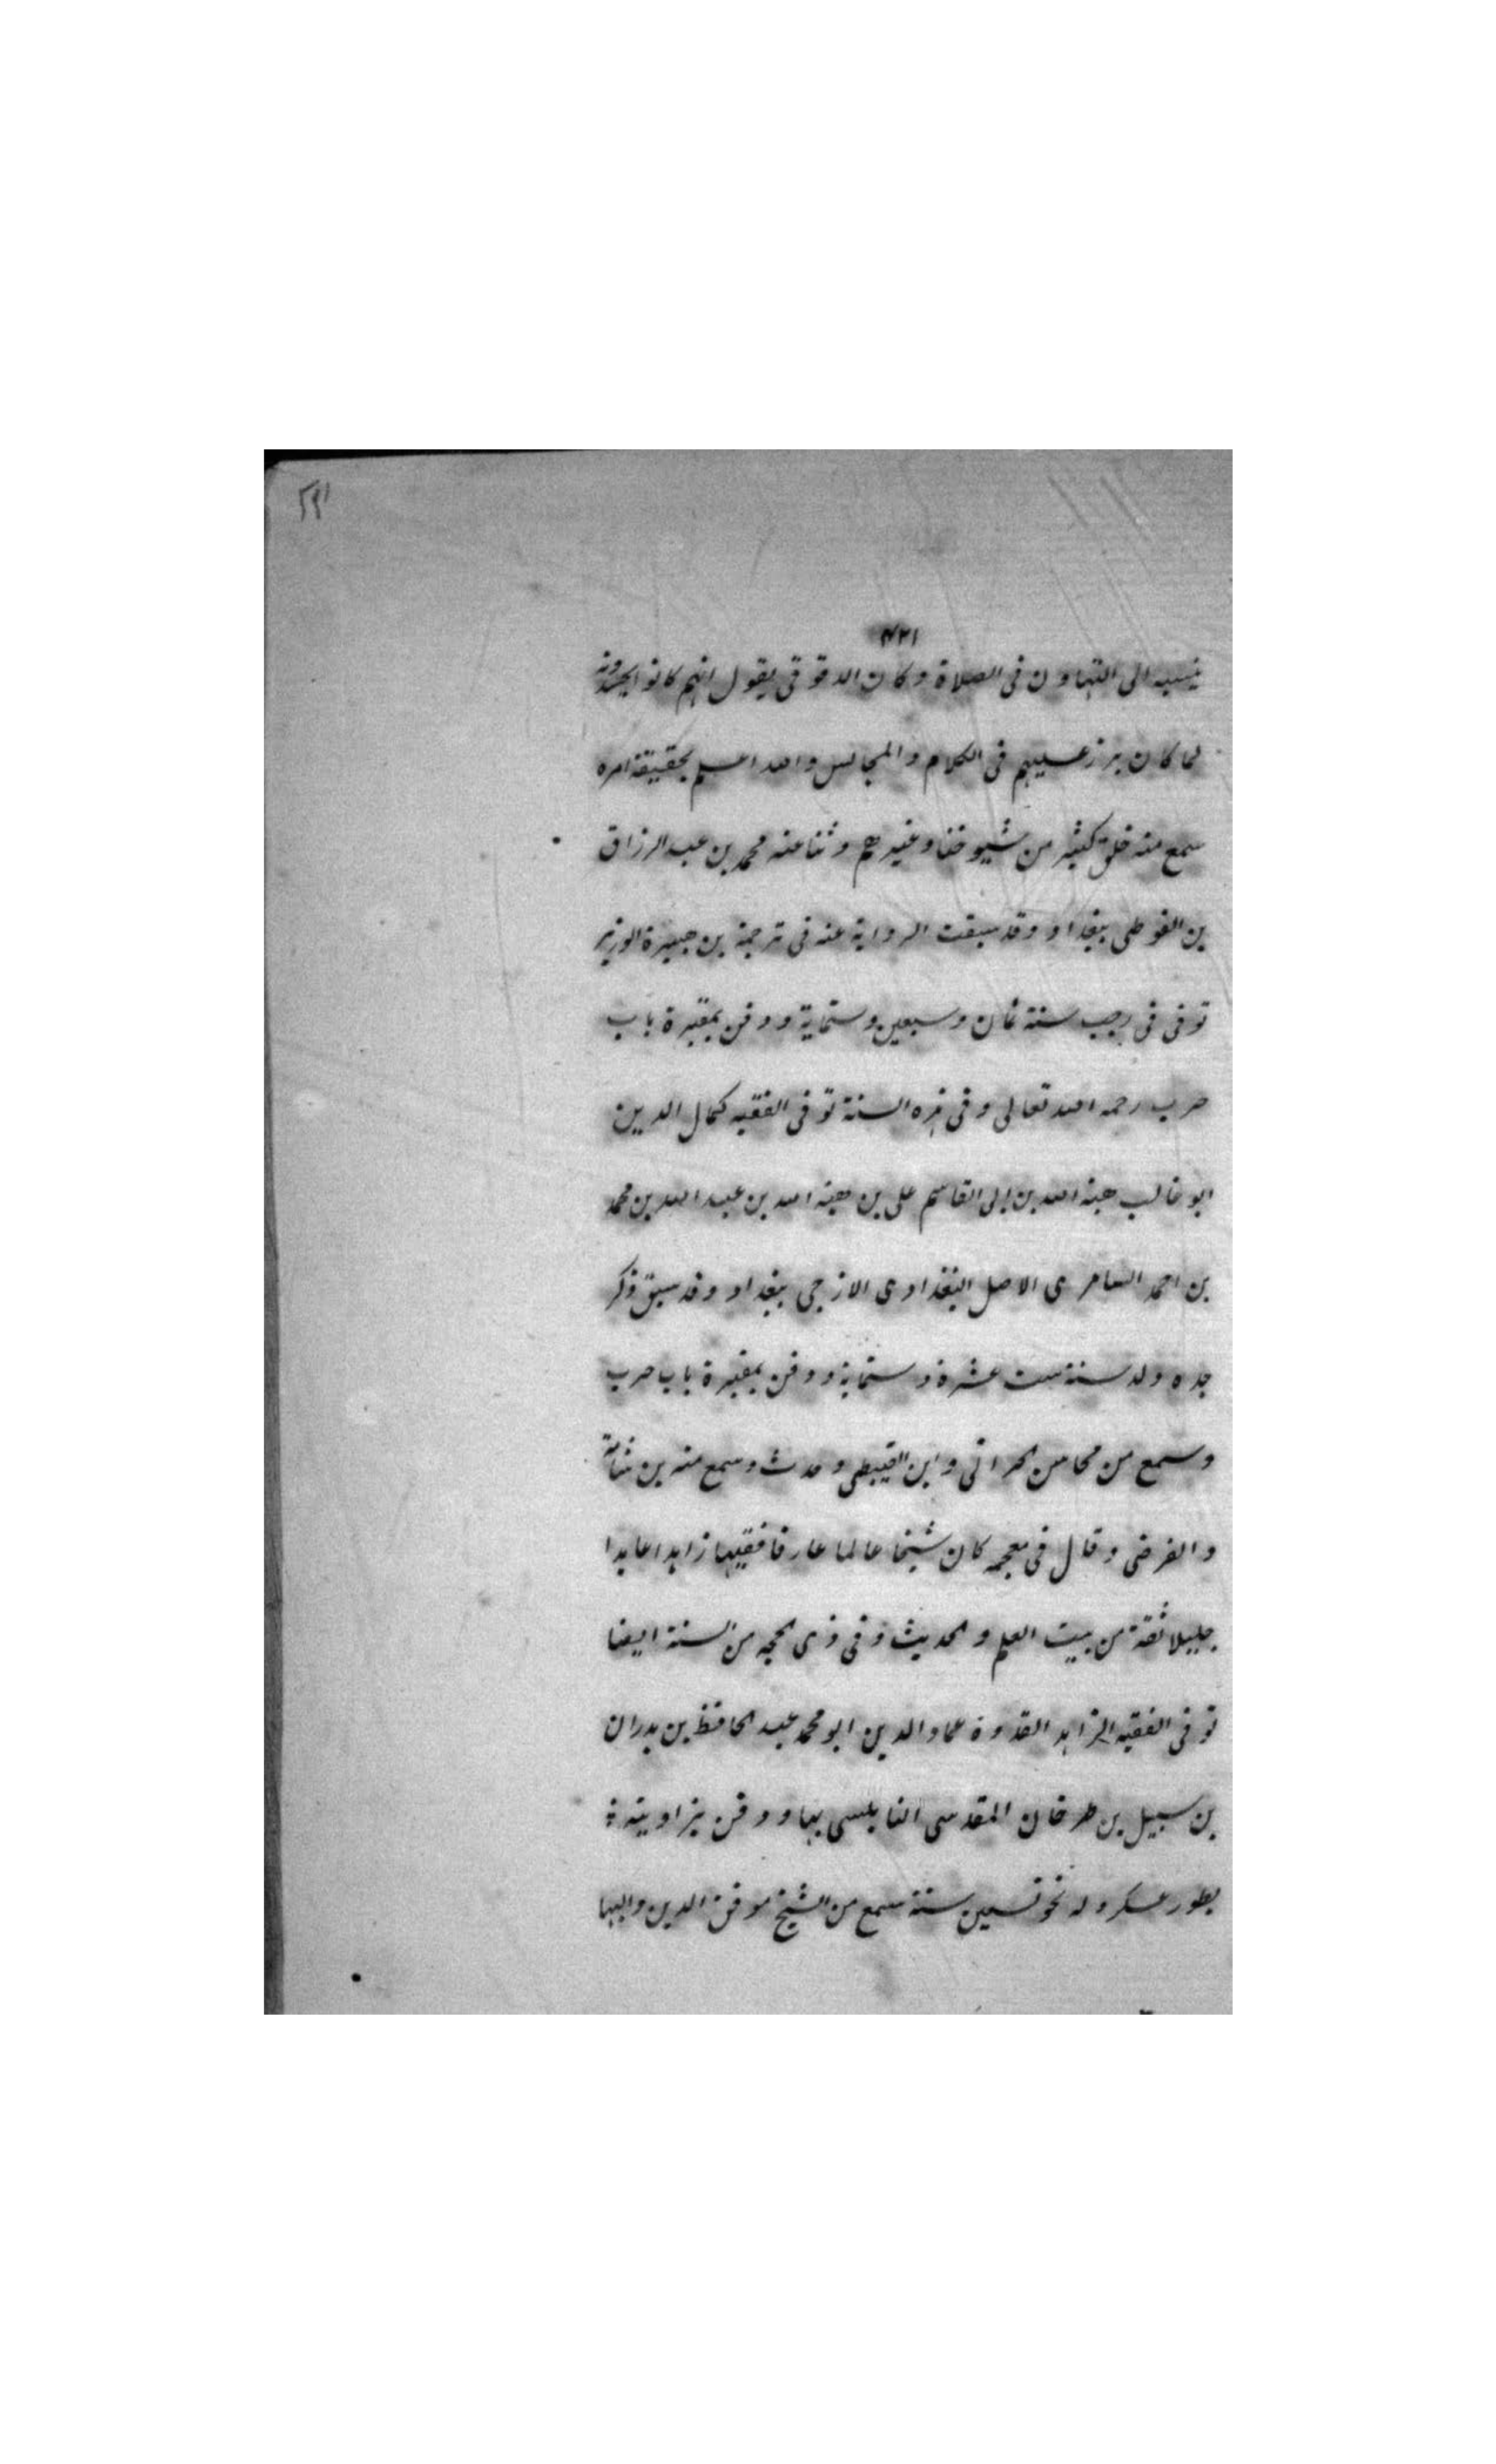 ٢٩١
٤٢١
ينسبه الى التهاون فى الصلاة وكان الدقوقى يقول انهم كانوا يحسدونه
لما كان برز عليهم فى الكلام والمجالس والله اعلم بحقيقة امره
سمع منه خلق كثير من شيوخنا وغيرهم وثنا عنه محمد بن عبد الرزاق
بن الفوطى ببغداد وقد سبقت الرواية عنه فى ترجمة بن هبيرة الوزير
توفى فى رجب سنة ثمان وسبعين وستماية ودفن بمقبرة باب
حرب رحمه الله تعالى وفى هذه السنة توفى الفقيه كمال الدين
ابو غالب هبة الله بن ابى القاسم على بن هبة الله بن عبد الله بن محمد
بن احمد السامرى الاصل البغدادى الازجى ببغداد وقد سبق ذكر
جده ولد سنة ست عشرة وستماية ودفن بمقبرة باب حرب
وسمع من محاسن الحرانى وابن القبيطى وحدث وسمع منه بن شامة
والفرضى وقال فى معجمه كان شيخا عالما عارفا فقيها زاهدا عابدا
جليلا ثقة من بيت العلم والحديث وفى ذى الحجه من السنة ايضا
توفى الفقيه الزاهد القدوة عماد الدين ابو محمد عبد الحافظ بن بدران
بن سبيل بن طرخان المقدسى النابلسى بها ودفن بزاويته
بطور عسكر وله نحو تسعين سنة سمع من الشيخ موفق الدين والبها